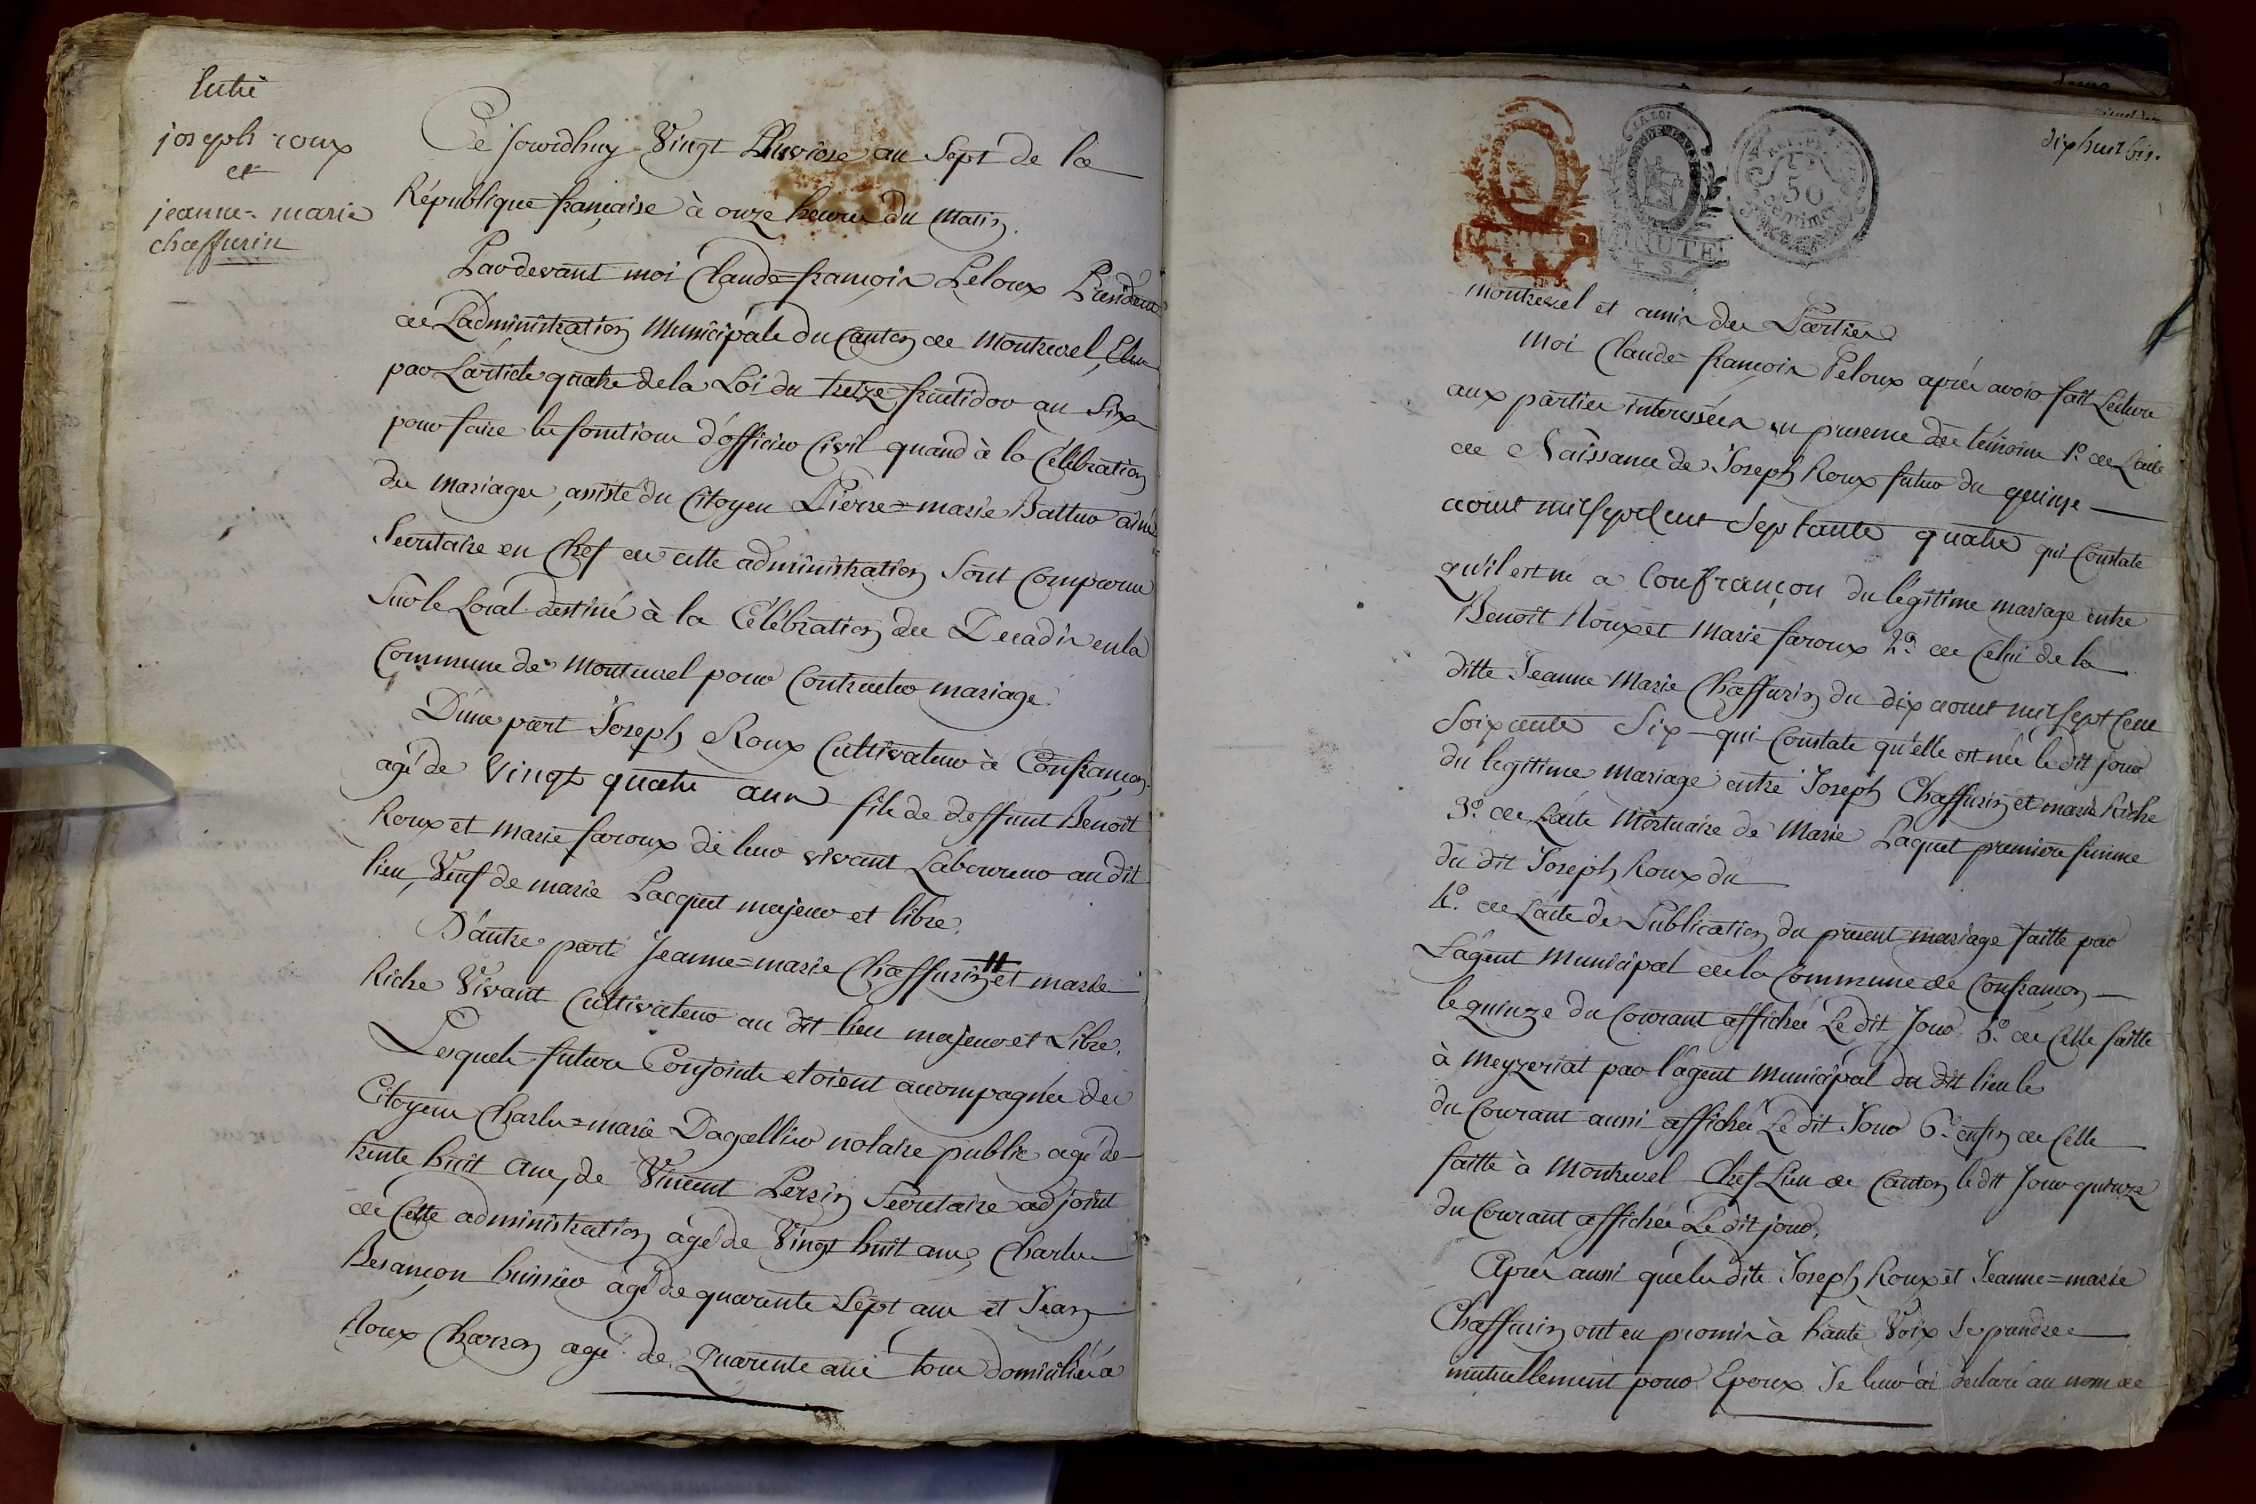 Entre
joseph roux
et
jeanne=marie
chaffurin
Ce jourdhuy Vingt Pluviose an Sept de la
République française à onze heures du matin.
Pardevant moi Claude=françois Peloux Président
de Ladministration Municipale du Canton de Montrevel,
par L'article quatre de la Loi du treize fructidor an Six
pour faire les fonctions d'officier Civil quand à la Célébration
des Mariages, assisté du Citoyen Pierre=marie Battur ainé
Secretaire en Chef de cette administration Sont Comparus
Sur le Local destiné à la Célébration des Decadis en la
Commune de Montrevel pour Contracter mariage.
D'une part Joseph Roux Cultivateur à Confrançon
agé de Vingt quatre ans fils de deffunt Benoit
Roux et Marie faroux de leur vivant Laboureur au dit
lieu, Veuf de marie Pacquet majeur et libre.
D'autre part Jeanne=marie Chaffurin et marie
Riche Vivant Cultivateur au dit lieu majeur et Libre.
Lesquels futurs Conjoints etoient accompagnés des
Citoyens Charles=marie Dagallier notaire public agé de
trente huit ans, de Vincent Perrin Secretaire adjoint
de Cette administration agé de Vingt huit ans, Charles
Besançon huissier agé de quarente Sept ans et Jean
Roux Charron agé de Quarente ans tous domiciliés à
dixhuit bis.
LA LOI
MINUTE
50
centimes
Montrevel et amis des Parties.
Moi Claude=françois Peloux après avoir fait Lecture
aux parties interessées en presence des témoins 1.º de L'acte
de Naissance de Joseph Roux futur du quinze
aout mil sept cent Septante quatre qui Constate
qu'il est né a Confrançon du légitime mariage entre
Benoît Roux et Marie faroux 2.º de Celui de la
ditte Jeanne Marie Chaffurin du dix aout mil Sept Cent
Soixante Six qui Constate qu'elle est née le dit jour
du legitime Mariage entre Joseph Chaffurin et marie Riche
3.º de L'acte Mortuaire de Marie Paquet premiere femme
du dit Joseph Roux du
4.º de L'acte de Publication du present mariage faitte par
L'agent Municipal de la Commune de Confrançon
le quinze du Courant affichée Le dit Jour 5.º de Celle faitte
à Meyzeriat par l'agent Municipal du dit lieu le
du Courant aussi affichée Le dit Jour 6.º enfin de Celle
faitte à Montrevel Chef Lieu de Canton le dit Jour quinze
du Courant affichée Le dit jour.
Après aussi que les dits Joseph Roux et Jeanne=marie
Chaffurin ont eu promis à haute Voix Se prendre
mutuellement pour Epoux Je leur ai declaré au nom de